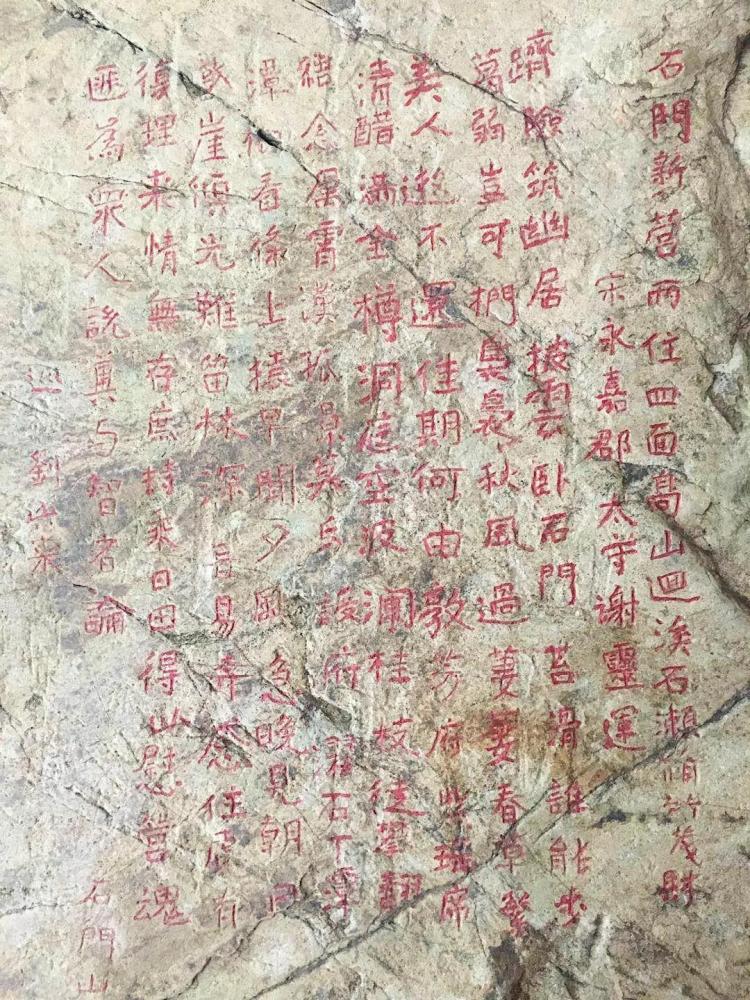 石門新营兩住四面高山迴溪石瀨脩竹茂林
宋永嘉郡太守謝靈運
躋險筑幽居披雲卧石門苔滑誰能步
葛弱豈可捫裊裊秋風過萋萋春草繁
美人遊不還佳期何由敦芳府瑤席
清醋滿金樽洞庭空波瀾桂枝徒攀翻
結念屬霄漢孤景莫与設府濯石下潭
看條上猿早聞夕風急晚見朝日
崖傾光難留林深易奔感往慮有
復理来情無存庶持乘日用得以慰營魂
匪為衆人說冀与智者論
劉山泉
石門山